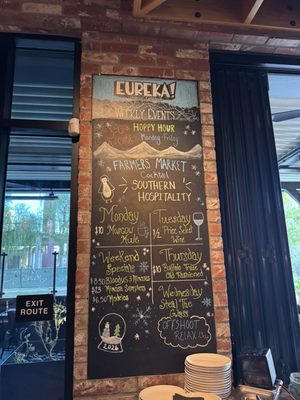 EUREKA!
WEEKLY EVENTS
HOPPY HOUR
Monday-Friday
FARMERS MARKET
Cocktail
SOUTHERN
HOSPITALITY
Monday
$10 Moscow
Mule
Tuesday
1/2 Price Select
Wine
Weekend
Specials
$8 Bloody's & Mimosas
$25 Mimosa
$6.50
Modelos
Thursday
$10 Buffalo Trace
Old Fashioned
Wednesday
Steal The
Glass
OFFSHOOT
RELAX
2026
EXIT
ROUTE